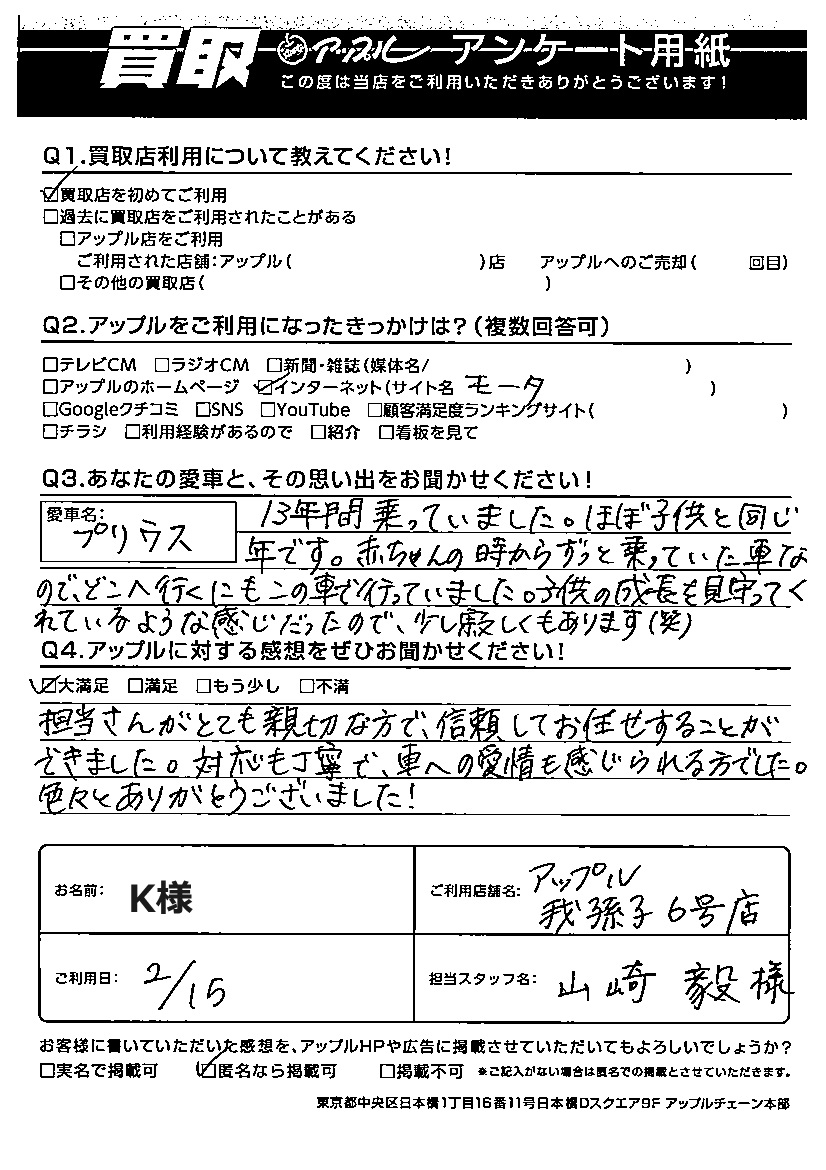 買取 アップル アンケート用紙
この度は当店をご利用いただきありがとうございます!
Q1.買取店利用について教えてください!
☑買取店を初めてご利用
□過去に買取店をご利用されたことがある
□アップル店をご利用
ご利用された店舗:アップル( )店 アップルへのご売却( 回目)
□その他の買取店( )
Q2.アップルをご利用になったきっかけは?(複数回答可)
□テレビCM □ラジオCM □新聞・雑誌(媒体名/ )
□アップルのホームページ ☑インターネット(サイト名 モータ )
□Googleクチコミ □SNS □YouTube □顧客満足度ランキングサイト( )
□チラシ □利用経験があるので □紹介 □看板を見て
Q3.あなたの愛車と、その思い出をお聞かせください!
愛車名: プリウス
13年間乗っていました。ほぼ子供と同じ
年です。赤ちゃんの時からずっと乗っていた車な
ので、どこへ行くにもこの車で行っていました。子供の成長を見守ってく
れているような感じだったので、少し寂しくもあります(笑)
Q4.アップルに対する感想をぜひお聞かせください!
☑大満足 □満足 □もう少し □不満
担当さんがとても親切な方で、信頼してお任せすることが
できました。対応も丁寧で、車への愛情も感じられる方でした。
色々とありがとうございました!
お名前: K様
ご利用店舗名: アップル
我孫子6号店
ご利用日: 2/15
担当スタッフ名: 山崎 毅様
お客様に書いていただいた感想を、アップルHPや広告に掲載させていただいてもよろしいでしょうか?
□実名で掲載可 ☑匿名なら掲載可 □掲載不可 ※ご記入がない場合は匿名での掲載とさせていただきます。
東京都中央区日本橋1丁目16番11号日本橋Dスクエア9F アップルチェーン本部